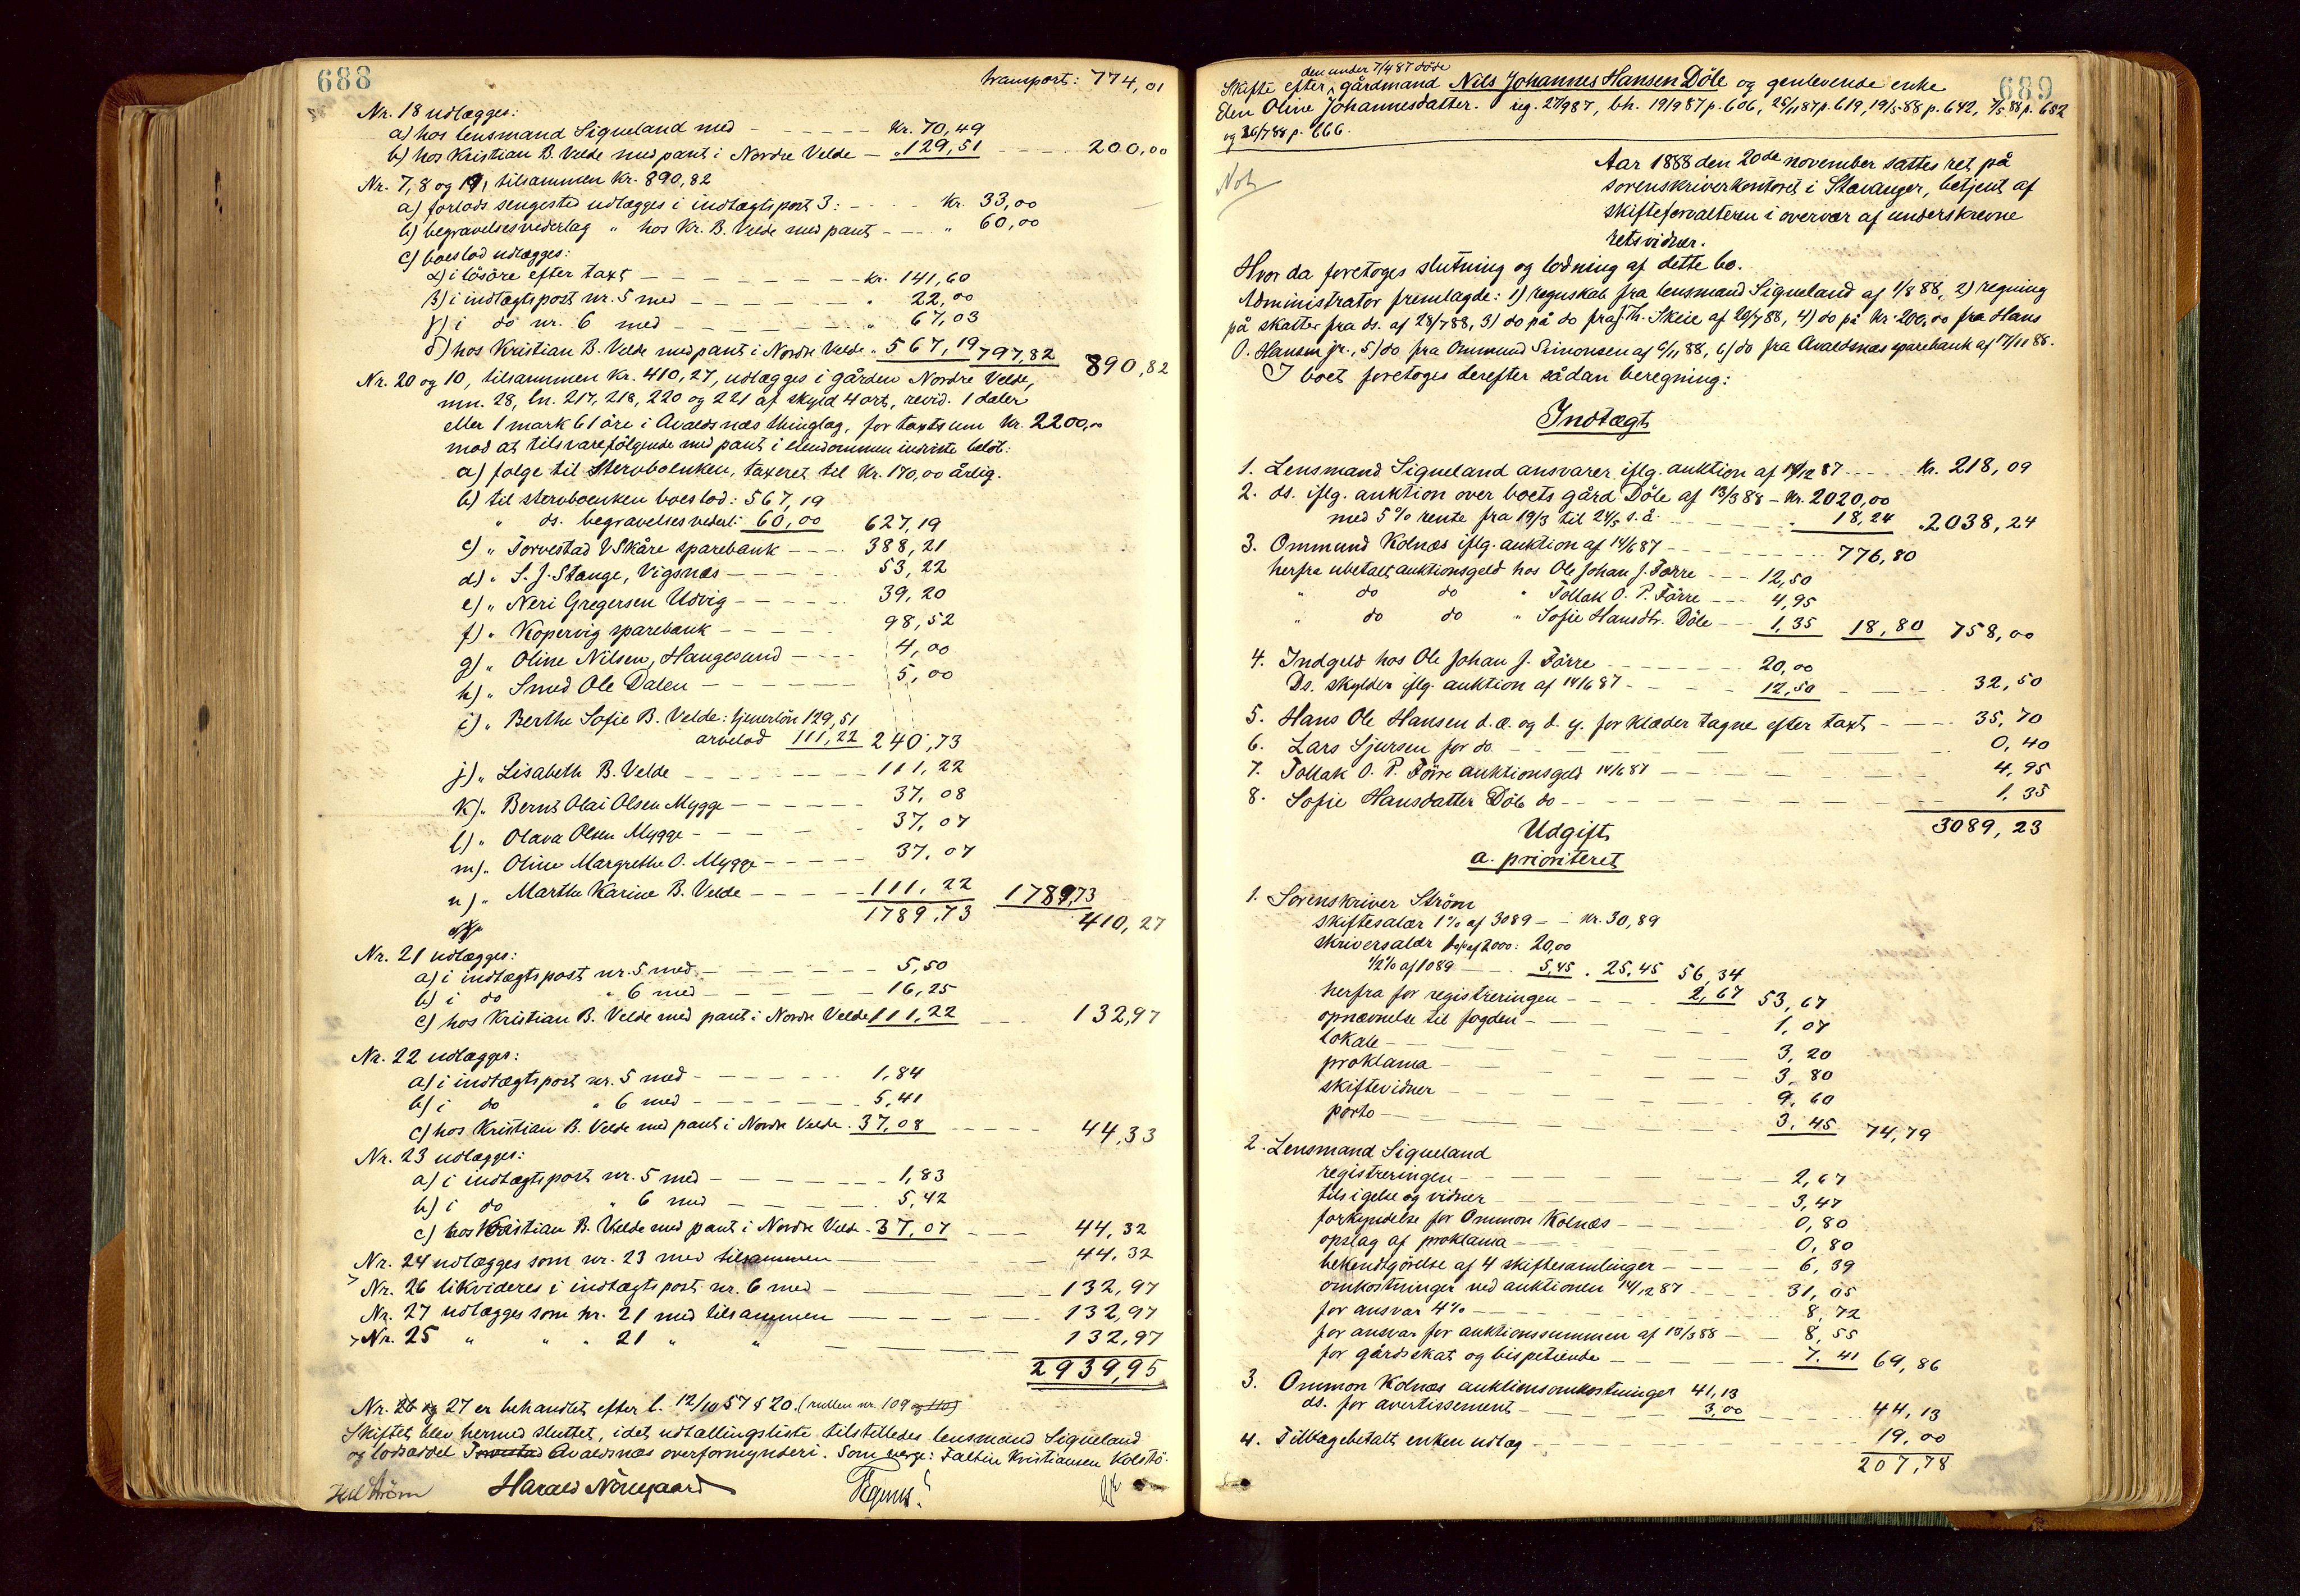 688
transport: 774,01
Nr. 18 udlægges:
a) hos lensmand Siqueland med — Kr. 70,49
b) hos Kristian B. Velde med pant i Nordre Velde — " 129,51 — 200,00
Nr. 7, 8 og 19, tilsammen Kr. 890,82
a) forlods sengested udlægges i indtægtspost 3: — Kr. 33,00
b) begravelsesvederlag " hos Kr. B. Velde med pant — " 60,00
c) boeslod udlægges:
α) i løsøre efter taxt — Kr. 141,60
β) i indtægtspost nr. 5 med — " 22,00
γ) i do nr. 6 med — " 67,03
δ) hos Kristian B. Velde med pant i Nordre Velde " 567,19 797,82 890,82
Nr. 20 og 10, tilsammen Kr. 410,27, udlægges i gården Nordre Velde,
mn. 28, ln. 217, 218, 220 og 221 af skyld 4 ort, revid. 1 daler
eller 1 mark 61 øre i Avaldsnæs thinglag, for taxtsum Kr. 2200,00
mod at tilsvare følgende med pant i eiendommen indviste beløb:
a) følge til stervboenken, taxeret til Kr. 170,00 årlig.
b) til stervboenken boeslod: 567,19
" ds. begravelsesvederl: 60,00 627,19
c) " Torvestad & Skåre sparebank — 388,21
d) " S. J. Stange, Vigsnæs — 53,22
e) " Neri Gregersen Udvig — 39,20
f) " Kopervig sparebank — 98,52
g) " Oline Nilsen, Haugesund — 4,00
h) " Smed Ole Dalen — 5,00
i) " Berthe Sofie B. Velde: tjenerløn 129,51
arvelod 111,22 240,73
j) " Lisabeth B. Velde — 111,22
k) " Bernt Olai Olsen Mygge — 37,08
l) " Olava Olsen Mygge — 37,07
m) " Oline Margrethe O. Mygge — 37,07
n) " Marthe Karine B. Velde — 111,22 1789,73
1789,73 410,27
Nr. 21 udlægges:
a) i indtægtspost nr. 5 med — 5,50
b) i do " 6 med — 16,25
c) hos Kristian B. Velde med pant i Nordre Velde 111,22 — 132,97
Nr. 22 udlægges:
a) i indtægtspost nr. 5 med — 1,84
b) i do " 6 med — 5,41
c) hos Kristian B. Velde med pant i Nordre Velde 37,08 — 44,33
Nr. 23 udlægges:
a) i indtægtspost nr. 5 med — 1,83
b) i do " 6 med — 5,42
c) hos Kristian B. Velde med pant i Nordre Velde 37,07 — 44,32
Nr. 24 udlægges som nr. 23 med tilsammen — 44,32
Nr. 26 likvideres i indtægtspost nr. 6 med — 132,97
Nr. 27 udlægges som nr. 21 med tilsammen — 132,97
Nr. 25 " " " 21 " " — 132,97
2939,95
Nr. 26 og 27 er behandlet efter l. 12/10 57 § 20. (rullen nr. 109 og 110)
Skiftet blev hermed sluttet, idet udtallingsliste tilstilledes lensmand Siqueland
og lodseddel Torvestad Avaldsnæs overformynderi. Som verge: Faltin Kristiansen Kolstø.
Strøm Harald Nörregaard
689
den under 7/4 87 døde
Skifte efter gårdmand Nils Johannes Hansen Döle og genlevende enke
Elen Oline Johannesdatter. reg. 27/9 87, bh. 19/9 87 p. 606, 25/11 87 p. 619, 19/3 88 p. 642, 7/5 88 p. 652
og 26/7 88 p. 666.
Not
Aar 1888 den 20de november sattes ret på
sorenskriverkontoret i Stavanger, betjent af
skifteforvalteren i overvær af underskrevne
retsvidner.
Hvor da foretoges slutning og lodning af dette bo.
Administrator fremlagde: 1) regnskab fra lensmand Siqueland af 1/8 88, 2) regning
på skatter fra ds. af 28/7 88, 3) do på do fra J. Th. Skeie af 20/7 88, 4) do på Kr. 200,00 fra Hans
O. Hansen jr., 5) do fra Ommund Simonsen af 6/11 88, 6) do fra Avaldsnæs sparebank af 17/11 88.
I boet foretoges derefter sådan beregning:
Indtægt
1. Lensmand Siqueland ansvarer iflg. auktion af 14/12 87 — Kr. 218,09
2. ds. iflg. auktion over boets gård Döle af 13/3 88 — Kr. 2020,00
med 5 % rente fra 19/3 til 24/5 s. å. — " 18,24 " 2038,24
3. Ommund Kolnæs iflg. auktion af 14/6 87 — 776,80
herfra ubetalt auktionsgeld hos Ole Johan J. Førre — 12,50
" do do " Tollak O. P. Førre — 4,95
" do do " Sofie Hansdtr. Döle — 1,35 18,80 758,00
4. Indgeld hos Ole Johan J. Førre — 20,00
Ds. skylder iflg. auktion af 14/6 87 — 12,50 — 32,50
5. Hans Ole Hansen d. æ. og d. y. for klæder tagne efter taxt — 35,70
6. Lars Sjursen for do — 0,40
7. Tollak O. P. Førre auktionsgeld 14/6 87 — 4,95
8. Sofie Hansdatter Döle do — 1,35
3089,23
Udgift
a. prioriteret
1. Sorenskriver Ström
skiftesalær 1% af 3089 — Kr. 30,89
skriversalær 1% af 2000: 20,00
1/2% af 1089 — 5,45 " 25,45 56,34
herfra for registreringen — 2,67 53,67
opnævnelse til fogden — 1,07
lokale — 3,20
proklama — 3,80
skiftevidner — 9,60
porto — 3,45 74,79
2. Lensmand Siqueland
registreringen — 2,67
tilsigelse og vidner — 3,47
forkyndelse for Ommon Kolnæs — 0,80
opslag af proklama — 0,80
bekendtgörelse af 4 skiftesamlinger — 6,39
omkostninger ved auktionen 14/12 87 — 31,05
for ansvar 4% — 8,72
for ansvar for auktionssummen af 13/3 88 — 8,55
for gårdsskat og bispetiende — 7,41 69,86
3. Ommon Kolnæs auktionsomkostninger 41,13
ds. for avertissement — 3,00 — 44,13
4. Tilbagebetalt enken udlæg — 19,00
207,78